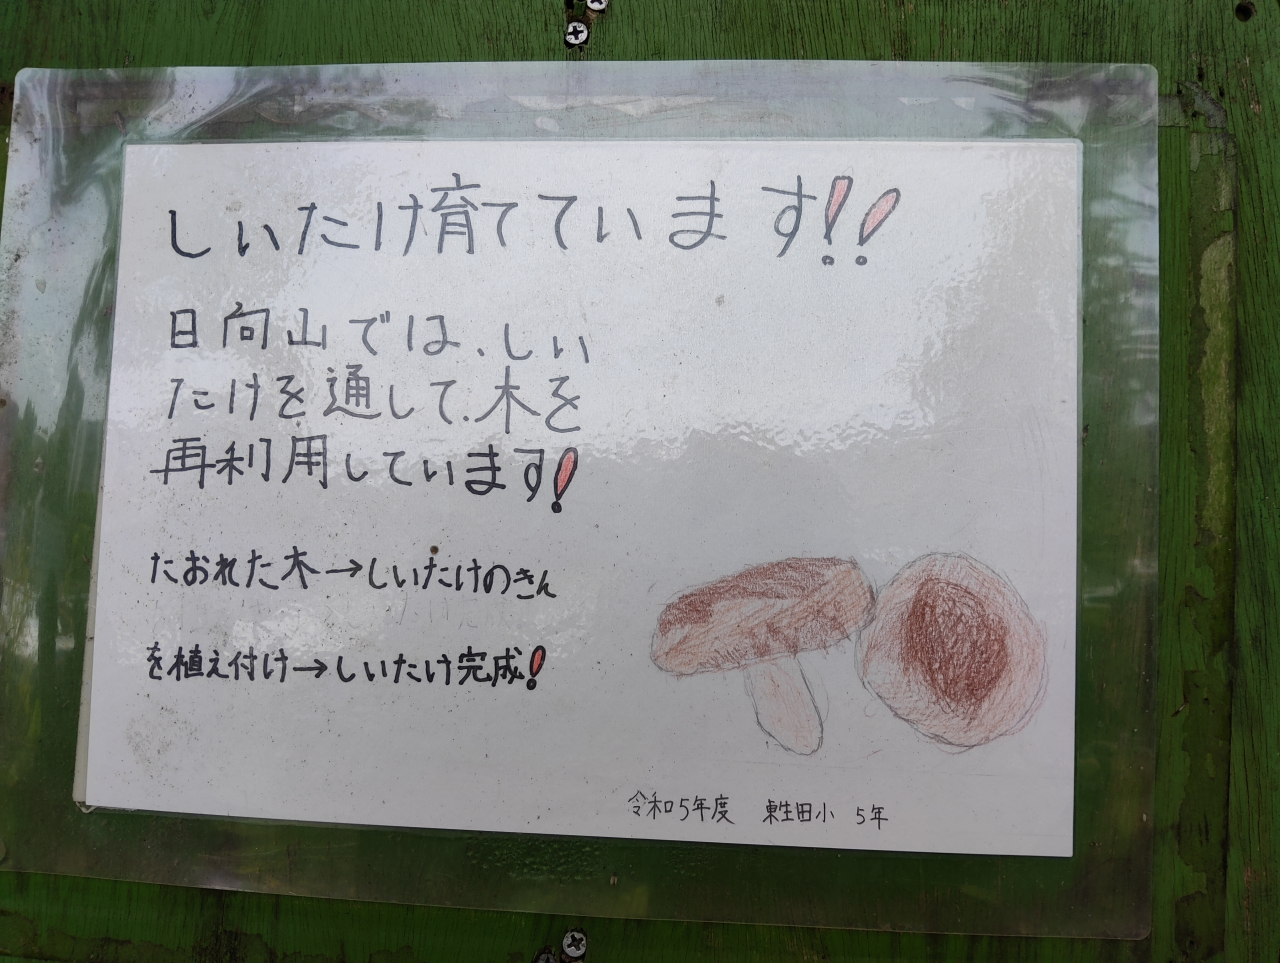 しいたけ育てています!!
日向山では、しい
たけを通して、木を
再利用しています!
たおれた木→しいたけのきん
を植え付け→しいたけ完成!
令和5年度 東生田小 5年